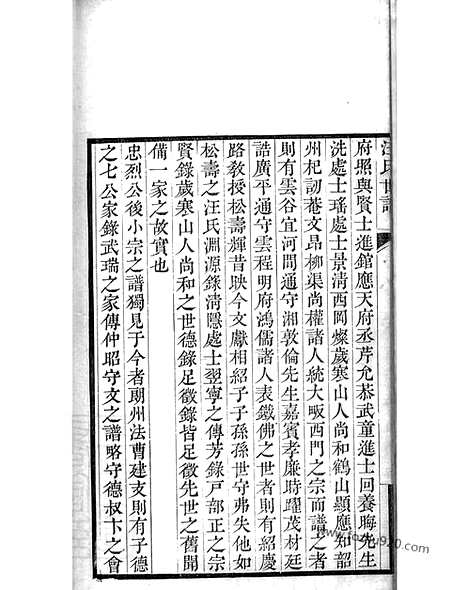 汪氏世譜
府照與賢士進錧應天府丞芹允恭武童進士回養晦先生
洗處士瑤處士景清西岡燦歲寒山人尚和鶴山顯應知韶
州杞訒菴文昂柳渠尚權諸人統大畈西門之宗而譜之者
則有雲谷宜河間通守湘敦倫先生嘉賓孝廉時躍茂材廷
誥廣平通守雲程明府鴻儒諸人表鐵佛之世者則有紹慶
路教授松壽輝昔映今文獻相紹子子孫孫世守弗失他如
松壽之汪氏淵源錄清隱處士翌寧之傳芳錄戸部正之宗
賢錄歲寒山人尚和之世德錄足徵錄皆足徵先世之舊聞
備一家之故實也
忠烈公後小宗之譜獨見于今者剐州法曹建支則有子德
之七公家錄武瑞之家傳仲昭守文之譜略守德叔卞之會
www.fozhu920.com